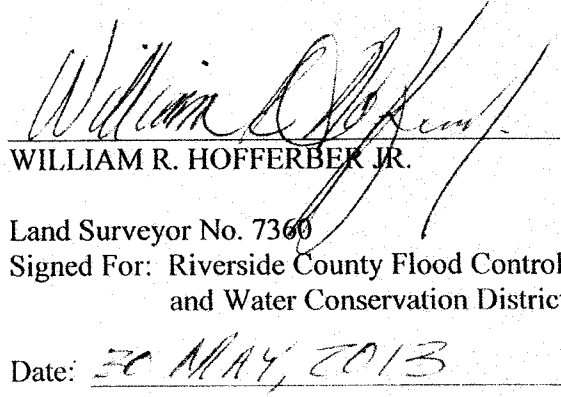 William R Hofferber Jr.
WILLIAM R. HOFFERBER JR.
Land Surveyor No. 7360
Signed For: Riverside County Flood Control
and Water Conservation District
Date: 30 MAY, 2013